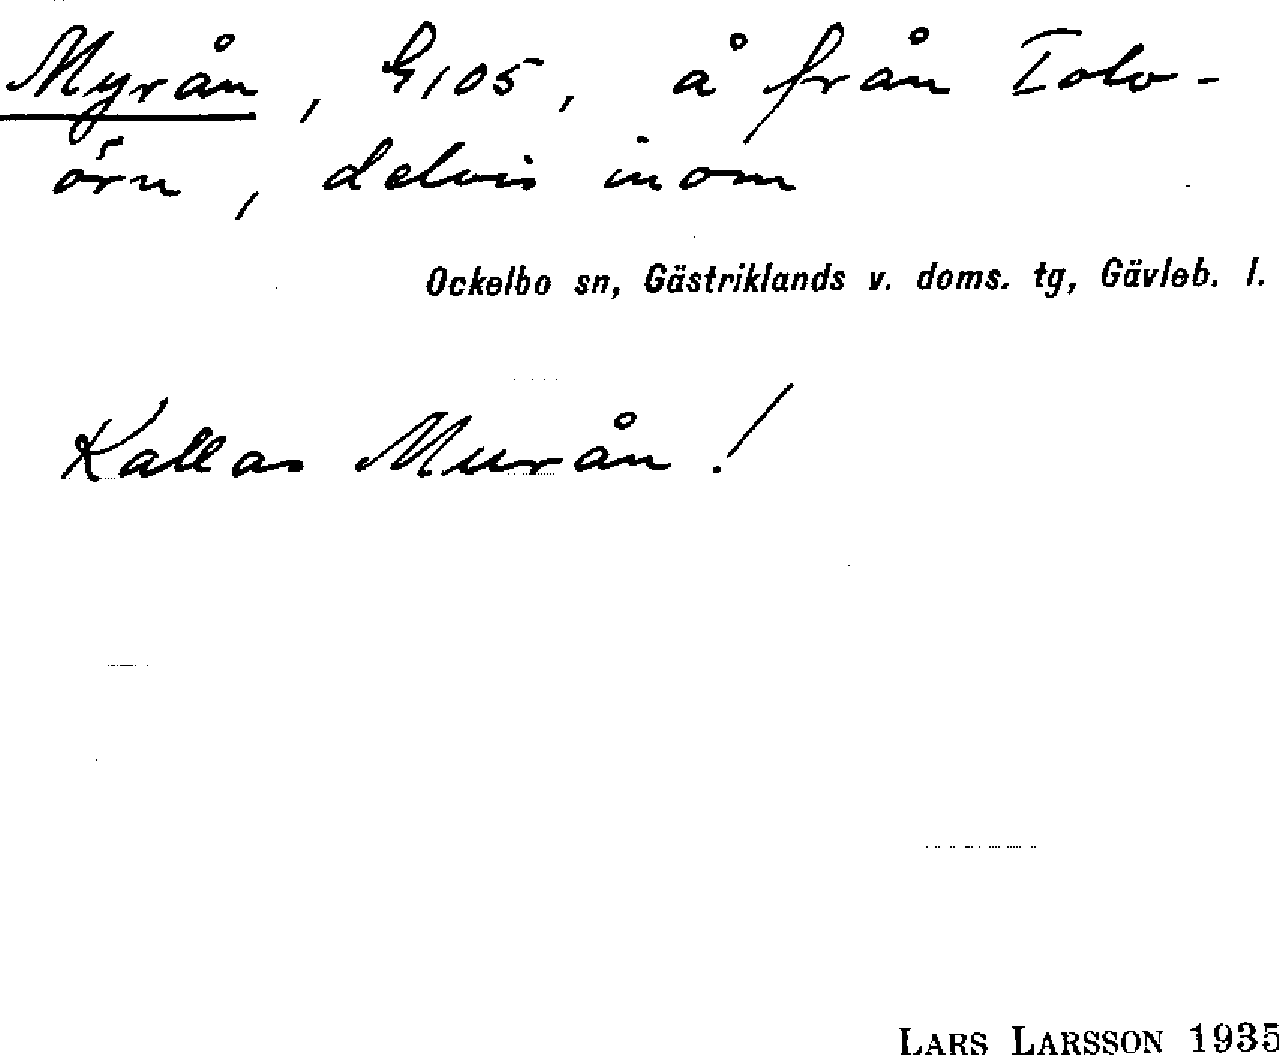 Myrån, G105, å från Tolv-
örn, delvis inom
Ockelbo sn, Gästriklands v. doms. tg, Gävleb. l.
Kallas Murån!
LARS LARSSON 1935